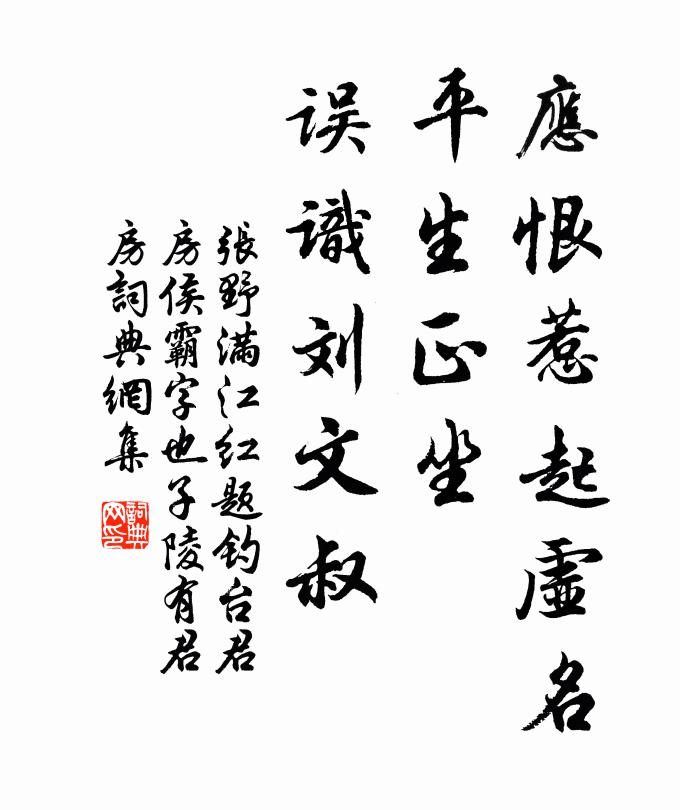 應恨惹起虛名
平生正坐
误識刘文叔
張野满江红题钓台君
房侯霸字也子陵有君
房詞典網集
詞典
网印